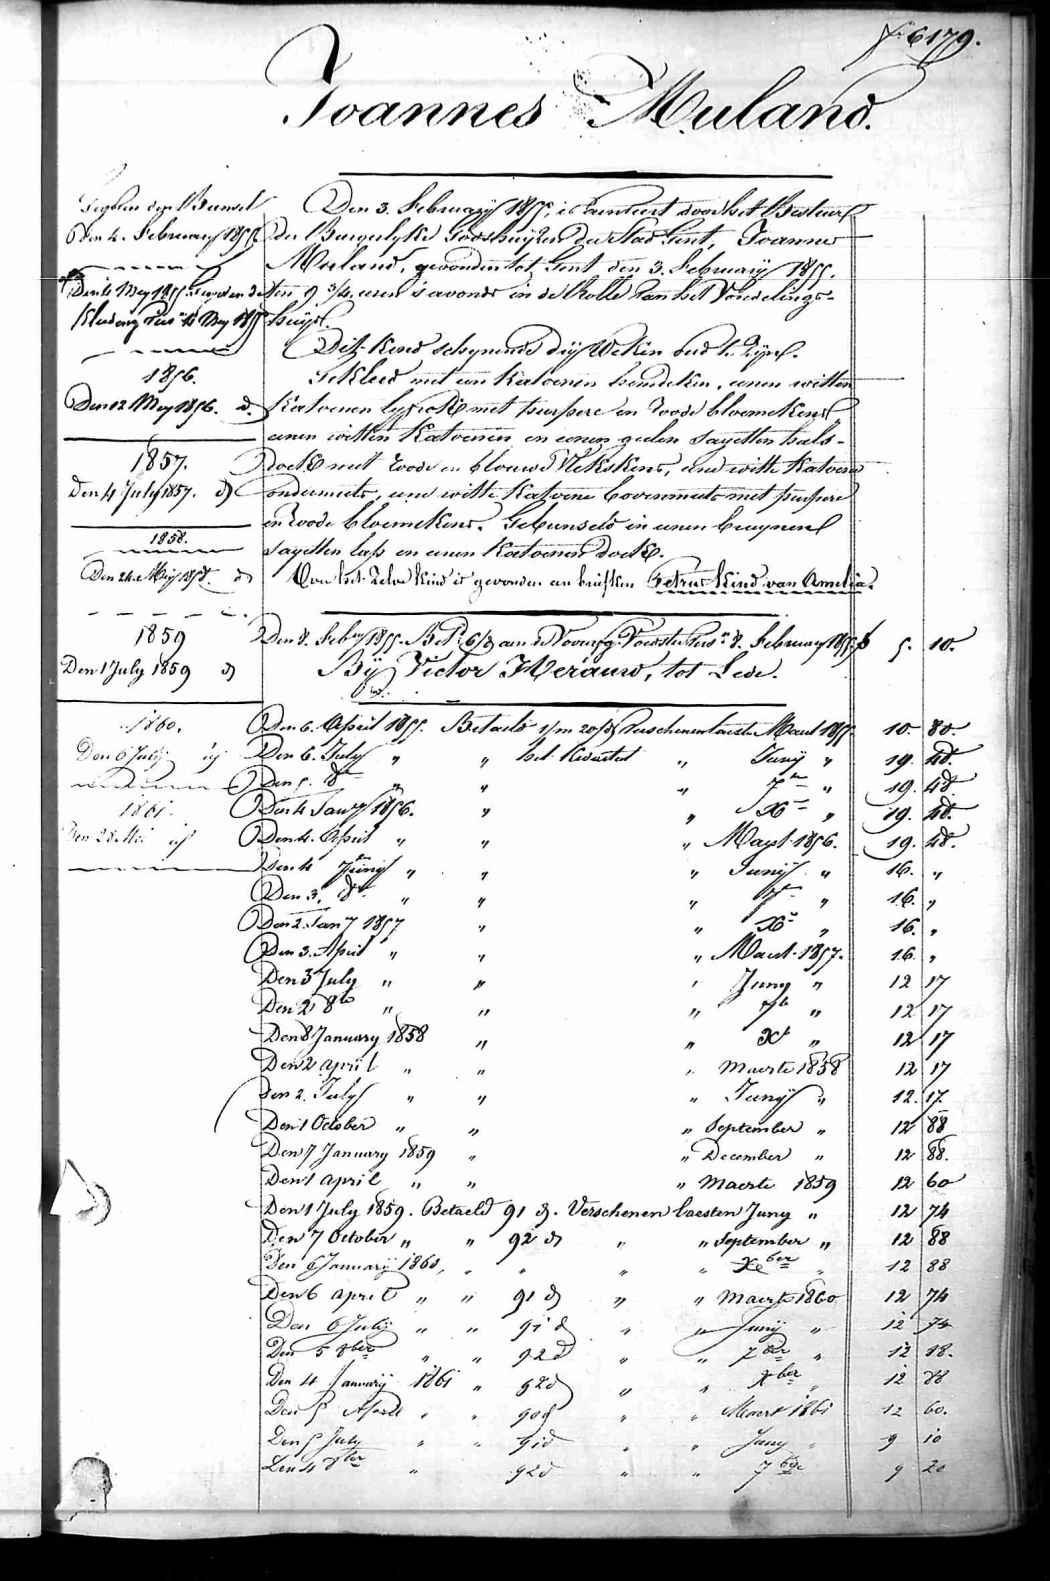 N. 6179.
Joannes Muland.
Den 4. February 1855
Den 4 Mey 1855
Kleeding
1856.
Den 12 Mey 1856. d.
1857.
Den 4 July 1857. d
1858.
Den 24 Meij 1858. d
1859
Den 1 July 1859 d
1860.
Den 6 July
1861.
Den 28 Mei
Den 3. February 1855, is door het Bestuur
der Burgerlyke Godshuyzen der Stad Gent, Joannes
Muland, gevonden tot Gent den 3. February 1855.
ten 9 3/4 uren s'avonds in de Rolle van het Vondelings-
huys.
Dit kind schynende dry Weken oud te zyn.
Gekleed met een katoenen hemdeken, eenen witten
katoenen met purpere en roode bloemekens
eenen witten katoenen en eenen geelen sayetten hals-
doek met roode en blouwe Vlekskens, eene witte katoene
ondermuts, eene witte katoene bovenmuts met purpere
en roode bloemekens. Gebunseld in eenen bruynen
sayetten lap en eenen katoenen doek.
Van het zelve kind is gevonden een briefken Petrus kind van Amelia.
Den 8. Feby 1855. 8. February 1855 5. 10.
Bij Victor Meráuw, tot Lede.
Den 6. April 1855. Betaeld Verschenen laeste Maert 1855. 10. 80.
Den 6. July " " het Kwartel " Juny " 19. 48.
Den 5. 8er " " " 7er " 19. 48
Den 4 January 1856. " " Xer " 19. 48.
Den 4. April " " " Maert 1856. 19. 48.
Den 4 July " " " Juny " 16. "
Den 3. 8er " " " 7er " 16. "
Den 2. Jany 1857 " " Xer " 16. "
Den 3. April " " " Maert 1857. 16. "
Den 3 July " " " Juny " 12 17
Den 2 8b " " " 7b " 12 17
Den 8 January 1858 " " Xb " 12 17
Den 2 april " " " Maerte 1858 12 17
Den 2. July " " " Juny " 12. 17.
Den 1 October " " " September " 12 88
Den 7 January 1859 " " December " 12 88.
Den 1 april " " " Maerte 1859 12 60
Den 1 July 1859. Betaeld 91 d. Verschenen laesten Juny " 12 74
Den 7 October " " 92 d " " September " 12 88
Den 6 January 1860, " " " " Xber " 12 88
Den 6 april " " 91 d " " Maerte 1860 12 74
Den 6 July " " 91 d " " Juny " 12 74
Den 5 8ber " " 92 d " " 7ber " 12 88.
Den 4 January 1861 " 92 d " " Xber " 12 88
Den 5 April " " 90 d " " Maert 1861 12 60.
Den 5 July " " 91 d " " Juny " 9 10
Den 4 8ber " 92 d " " 7ber 9 20